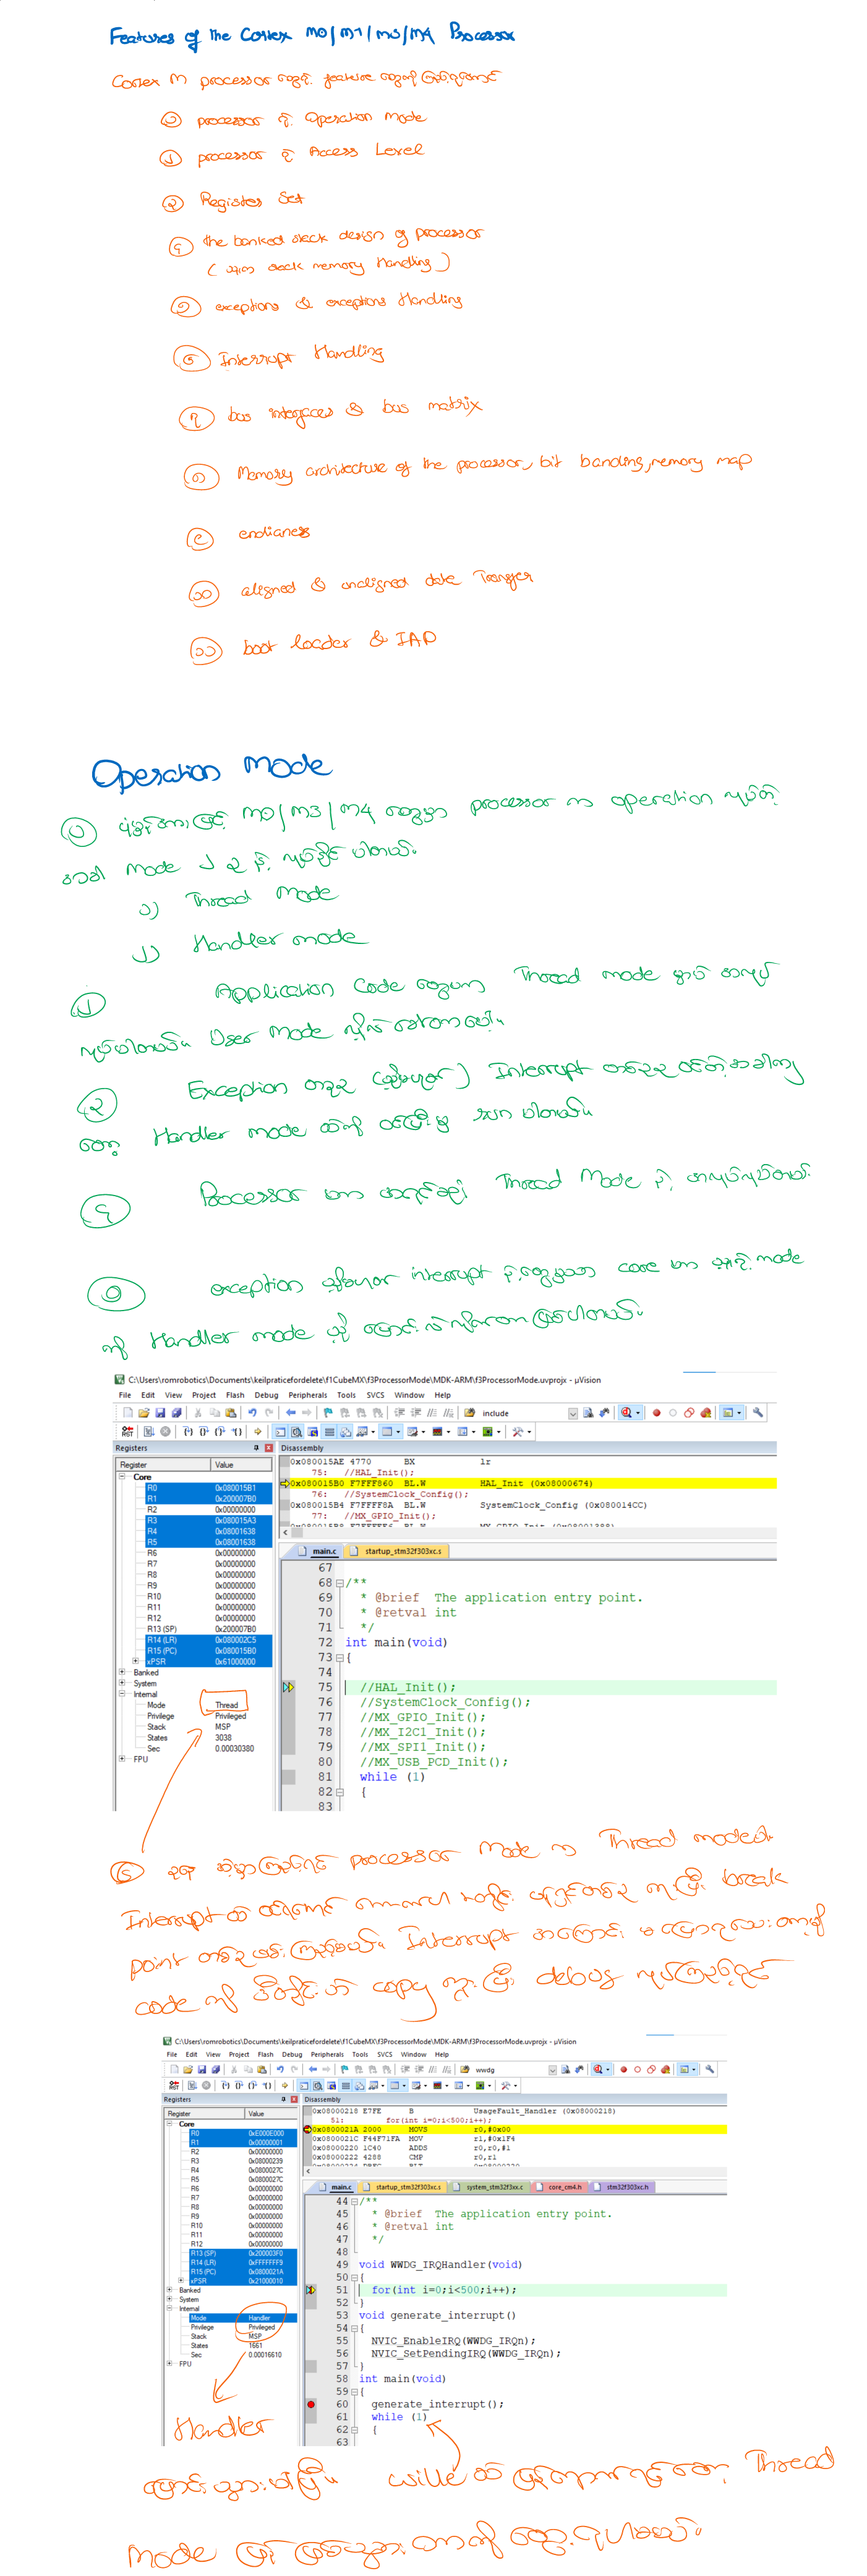 Features of the Cortex M0/M1/M3/M4 Processor
Cortex M processor တွေရဲ့ feature တွေကို ကြည့်ရအောင်
၁ processor ရဲ့ Operation Mode
၂ processor ရဲ့ Access Level
၃ Register Set
၄ the banked stack design of processor
( stack memory Handling )
၅ exceptions & exceptions Handling
၆ Interrupt Handling
၇ bus interfaces & bus matrix
၈ Memory architecture of the processor, bit banding, memory map
၉ endianess
၁၀ aligned & unaligned data Transfer
၁၁ boot loader & IAP
Operation Mode
၁ ပုံမှန်အားဖြင့် M0/M3/M4 တွေမှာ processor က operation လုပ်တဲ့
အခါ Mode ၂ ခု နဲ့ လုပ်နိုင် ပါတယ်။
၁) Thread Mode
၂) Handler mode
၂ Application Code တွေဟာ Thread mode မှာပဲ အလုပ်
လုပ်ပါတယ်။ User Mode လို့လဲ ခေါ်တာပေါ့။
၃ Exception တခုခု (သို့မဟုတ်) Interrupt တစ်ခုခု ဝင်တဲ့အခါကျ
တော့ Handler mode ထဲကို ဝင်ပြီးမှ ပါတယ်။
၄ Processor ဟာ အရင်ဆုံး Thread Mode နဲ့ အလုပ်လုပ်တယ်
၅ exception သို့မဟုတ် interrupt နဲ့တွေ့မှသာ core ဟာ သူ့ရဲ့ mode
ကို Handler mode သို့ ပြောင်းလဲလိုက်တာဖြစ်ပါတယ်။
C:\Users\romrobotics\Documents\keilpraticefordelete\f1CubeMX\f3ProcessorMode\MDK-ARM\f3ProcessorMode.uvprojx - µVision
File Edit View Project Flash Debug Peripherals Tools SVCS Window Help
include
Registers
Register Value
Core
R0 0x080015B1
R1 0x200007B0
R2 0x00000000
R3 0x080015A3
R4 0x08001638
R5 0x08001638
R6 0x00000000
R7 0x00000000
R8 0x00000000
R9 0x00000000
R10 0x00000000
R11 0x00000000
R12 0x00000000
R13 (SP) 0x200007B0
R14 (LR) 0x080002C5
R15 (PC) 0x080015B0
xPSR 0x61000000
Banked
System
Internal
Mode Thread
Privilege Privileged
Stack MSP
States 3038
Sec 0.00030380
FPU
Disassembly
0x080015AE 4770 BX lr
75: //HAL_Init();
0x080015B0 F7FFF860 BL.W HAL_Init (0x08000674)
76: //SystemClock_Config();
0x080015B4 F7FFFF8A BL.W SystemClock_Config (0x080014CC)
77: //MX_GPIO_Init();
main.c startup_stm32f303xc.s
67
68 /**
69 * @brief The application entry point.
70 * @retval int
71 */
72 int main(void)
73 {
74
75 //HAL_Init();
76 //SystemClock_Config();
77 //MX_GPIO_Init();
78 //MX_I2C1_Init();
79 //MX_SPI1_Init();
80 //MX_USB_PCD_Init();
81 while (1)
82 {
83
၆ ခုန ဆဲမှာကြည့်ရင် processor Mode က Thread mode ပါ
Interrupt ထဲ ဝင်ရအောင် တစ်ခု ကူးပြီး break
point တစ်ခု ကြည့်မယ်။ Interrupt အကြောင်း မပြောရသေးတာမို့
code ကို ဒီတိုင်းပဲ copy ကူးပြီး debug လုပ်ကြည့်ရင်
C:\Users\romrobotics\Documents\keilpraticefordelete\f1CubeMX\f3ProcessorMode\MDK-ARM\f3ProcessorMode.uvprojx - µVision
File Edit View Project Flash Debug Peripherals Tools SVCS Window Help
wwdg
Registers
Register Value
Core
R0 0xE000E000
R1 0x00000001
R2 0x00000000
R3 0x08000239
R4 0x0800027C
R5 0x0800027C
R6 0x00000000
R7 0x00000000
R8 0x00000000
R9 0x00000000
R10 0x00000000
R11 0x00000000
R12 0x00000000
R13 (SP) 0x200003F0
R14 (LR) 0xFFFFFFF9
R15 (PC) 0x0800021A
xPSR 0x21000010
Banked
System
Internal
Mode Handler
Privilege Privileged
Stack MSP
States 1661
Sec 0.00016610
FPU
Disassembly
0x08000218 E7FE B UsageFault_Handler (0x08000218)
51: for(int i=0;i<500;i++);
0x0800021A 2000 MOVS r0,#0x00
0x0800021C F44F71FA MOV r1,#0x1F4
0x08000220 1C40 ADDS r0,r0,#1
0x08000222 4288 CMP r0,r1
main.c startup_stm32f303xc.s system_stm32f3xx.c core_cm4.h stm32f303xc.h
44 /**
45 * @brief The application entry point.
46 * @retval int
47 */
48
49 void WWDG_IRQHandler(void)
50 {
51 for(int i=0;i<500;i++);
52 }
53 void generate_interrupt()
54 {
55 NVIC_EnableIRQ(WWDG_IRQn);
56 NVIC_SetPendingIRQ(WWDG_IRQn);
57 }
58 int main(void)
59 {
60 generate_interrupt();
61 while (1)
62 {
63
Handler
ပြောင်းသွားပါပြီ။ while ထဲ ပြန်ရောက်ရင်တော့ Thread
Mode ပြန် ဖြစ်သွား တာကို တွေ့ ရပါမယ်။